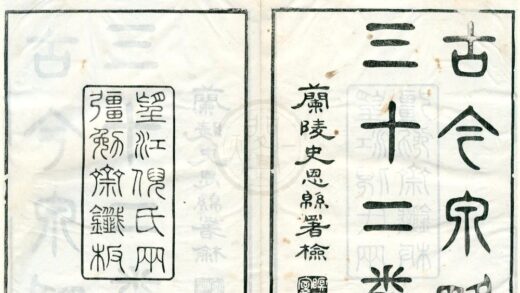 古今泉
三十二卷
蘭陵史恩緜署檢
望江倪氏兩
彊勉齋鐫板